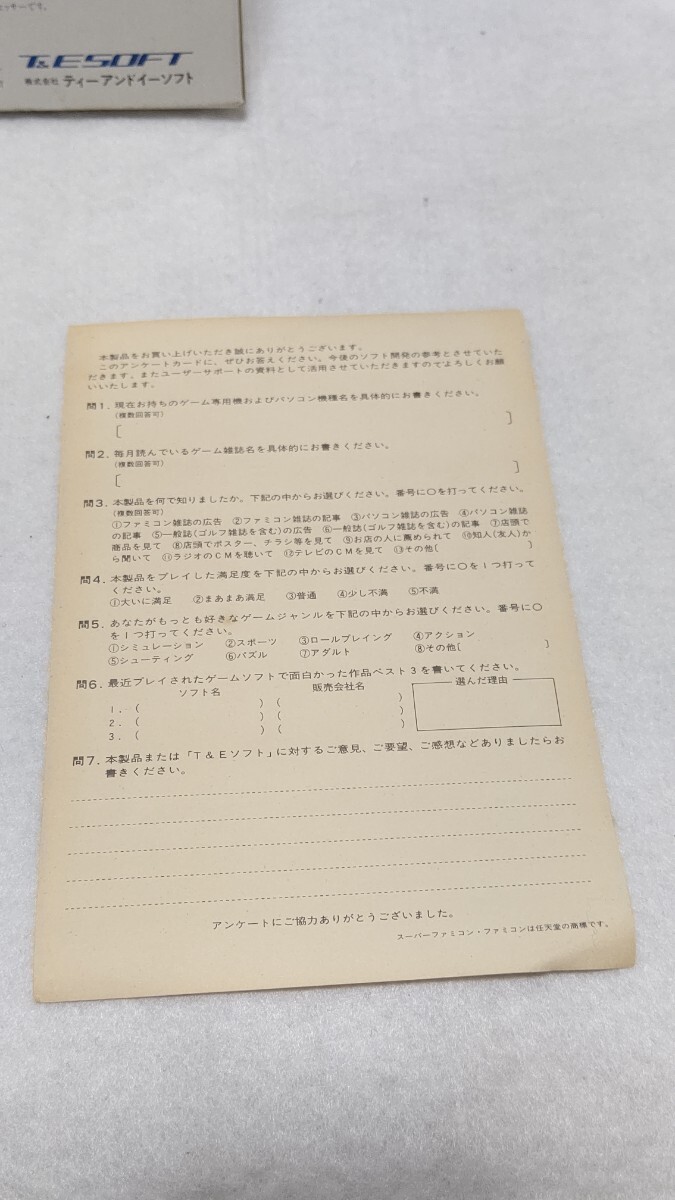 ッサーです。
T&ESOFT
株式会社 ティーアンドイーソフト
本製品をお買い上げいただき誠にありがとうございます。
このアンケートカードに、ぜひお答えください。今後のソフト開発の参考とさせていた
だきます。またユーザーサポートの資料として活用させていただきますのでよろしくお願
いいたします。
問1. 現在お持ちのゲーム専用機およびパソコン機種名を具体的にお書きください。
(複数回答可)
[ ]
問2. 毎月読んでいるゲーム雑誌名を具体的にお書きください。
(複数回答可)
[ ]
問3. 本製品を何で知りましたか。下記の中からお選びください。番号に○を打ってください。
(複数回答可)
①ファミコン雑誌の広告 ②ファミコン雑誌の記事 ③パソコン雑誌の広告 ④パソコン雑誌
の記事 ⑤一般誌(ゴルフ雑誌を含む)の広告 ⑥一般誌(ゴルフ雑誌を含む)の記事 ⑦店頭で
商品を見て ⑧店頭でポスター、チラシ等を見て ⑨お店の人に薦められて ⑩知人(友人)か
ら聞いて ⑪ラジオのCMを聴いて ⑫テレビのCMを見て ⑬その他[ ]
問4. 本製品をプレイした満足度を下記の中からお選びください。番号に○を1つ打って
ください。
①大いに満足 ②まあまあ満足 ③普通 ④少し不満 ⑤不満
問5. あなたがもっとも好きなゲームジャンルを下記の中からお選びください。番号に○
を1つ打ってください。
①シミュレーション ②スポーツ ③ロールプレイング ④アクション
⑤シューティング ⑥パズル ⑦アダルト ⑧その他[ ]
問6. 最近プレイされたゲームソフトで面白かった作品ベスト3を書いてください。
ソフト名 販売会社名 選んだ理由
1. ( ) ( )
2. ( ) ( )
3. ( ) ( )
問7. 本製品または「T&Eソフト」に対するご意見、ご要望、ご感想などありましたらお
書きください。
アンケートにご協力ありがとうございました。
スーパーファミコン・ファミコンは任天堂の商標です。